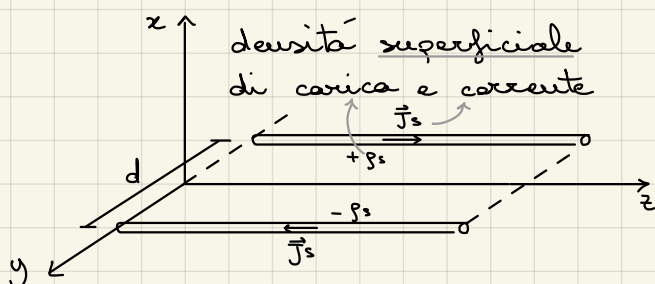 x
densitá superficiale
di carica e corrente
J⃗s
+ρs
d
z
-ρs
J⃗s
y